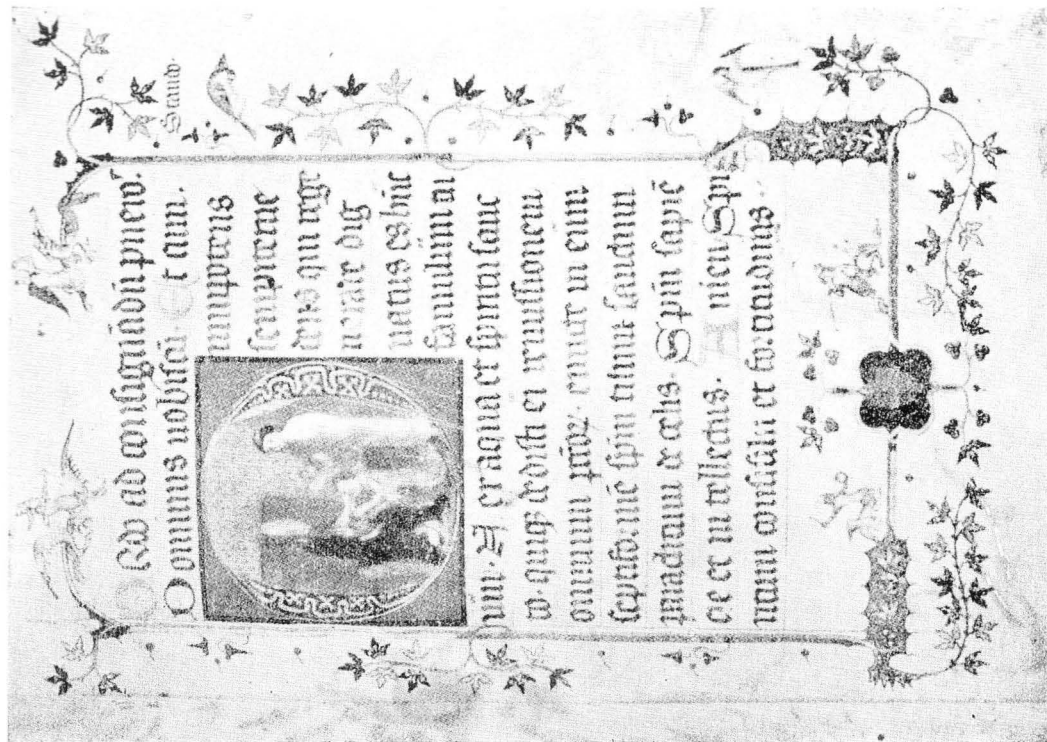 ORdo ad consignādū pueroꝝ.
Stando.
Dominus uobiscū. Et cum.
mnipotens
sempiterne
deus qui rege
nerare dig
natus es hūc
famulum tu
um. Ex aqua et spiritu sanc
to. quiqȝ dedisti ei remissionem
omnium emitte in eum
septiformē spm tuum sanctum
paraclitum de celis. Spm sapiē
tie et intellectus. Amen. Spiri
tum consilii et fortitudinis.